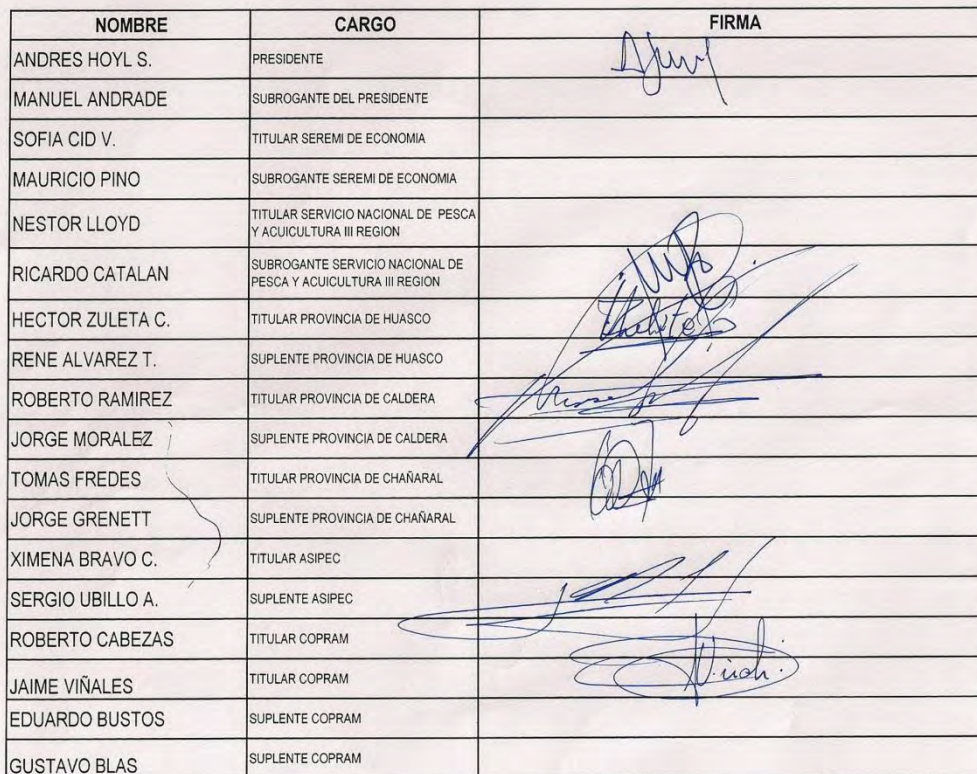 NOMBRE CARGO FIRMA
ANDRES HOYL S. PRESIDENTE
MANUEL ANDRADE SUBROGANTE DEL PRESIDENTE
SOFIA CID V. TITULAR SEREMI DE ECONOMIA
MAURICIO PINO SUBROGANTE SEREMI DE ECONOMIA
NESTOR LLOYD TITULAR SERVICIO NACIONAL DE PESCA
Y ACUICULTURA III REGION
RICARDO CATALAN SUBROGANTE SERVICIO NACIONAL DE
PESCA Y ACUICULTURA III REGION
HECTOR ZULETA C. TITULAR PROVINCIA DE HUASCO
RENE ALVAREZ T. SUPLENTE PROVINCIA DE HUASCO
ROBERTO RAMIREZ TITULAR PROVINCIA DE CALDERA
JORGE MORALEZ SUPLENTE PROVINCIA DE CALDERA
TOMAS FREDES TITULAR PROVINCIA DE CHAÑARAL
JORGE GRENETT SUPLENTE PROVINCIA DE CHAÑARAL
XIMENA BRAVO C. TITULAR ASIPEC
SERGIO UBILLO A. SUPLENTE ASIPEC
ROBERTO CABEZAS TITULAR COPRAM
JAIME VIÑALES TITULAR COPRAM
EDUARDO BUSTOS SUPLENTE COPRAM
GUSTAVO BLAS SUPLENTE COPRAM